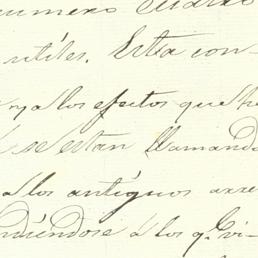 numero cuatro
utiles. Esta con-
y a los efectos que he
se estan llamando
a los antíguos arre
ndiéndose á los q.e vi-